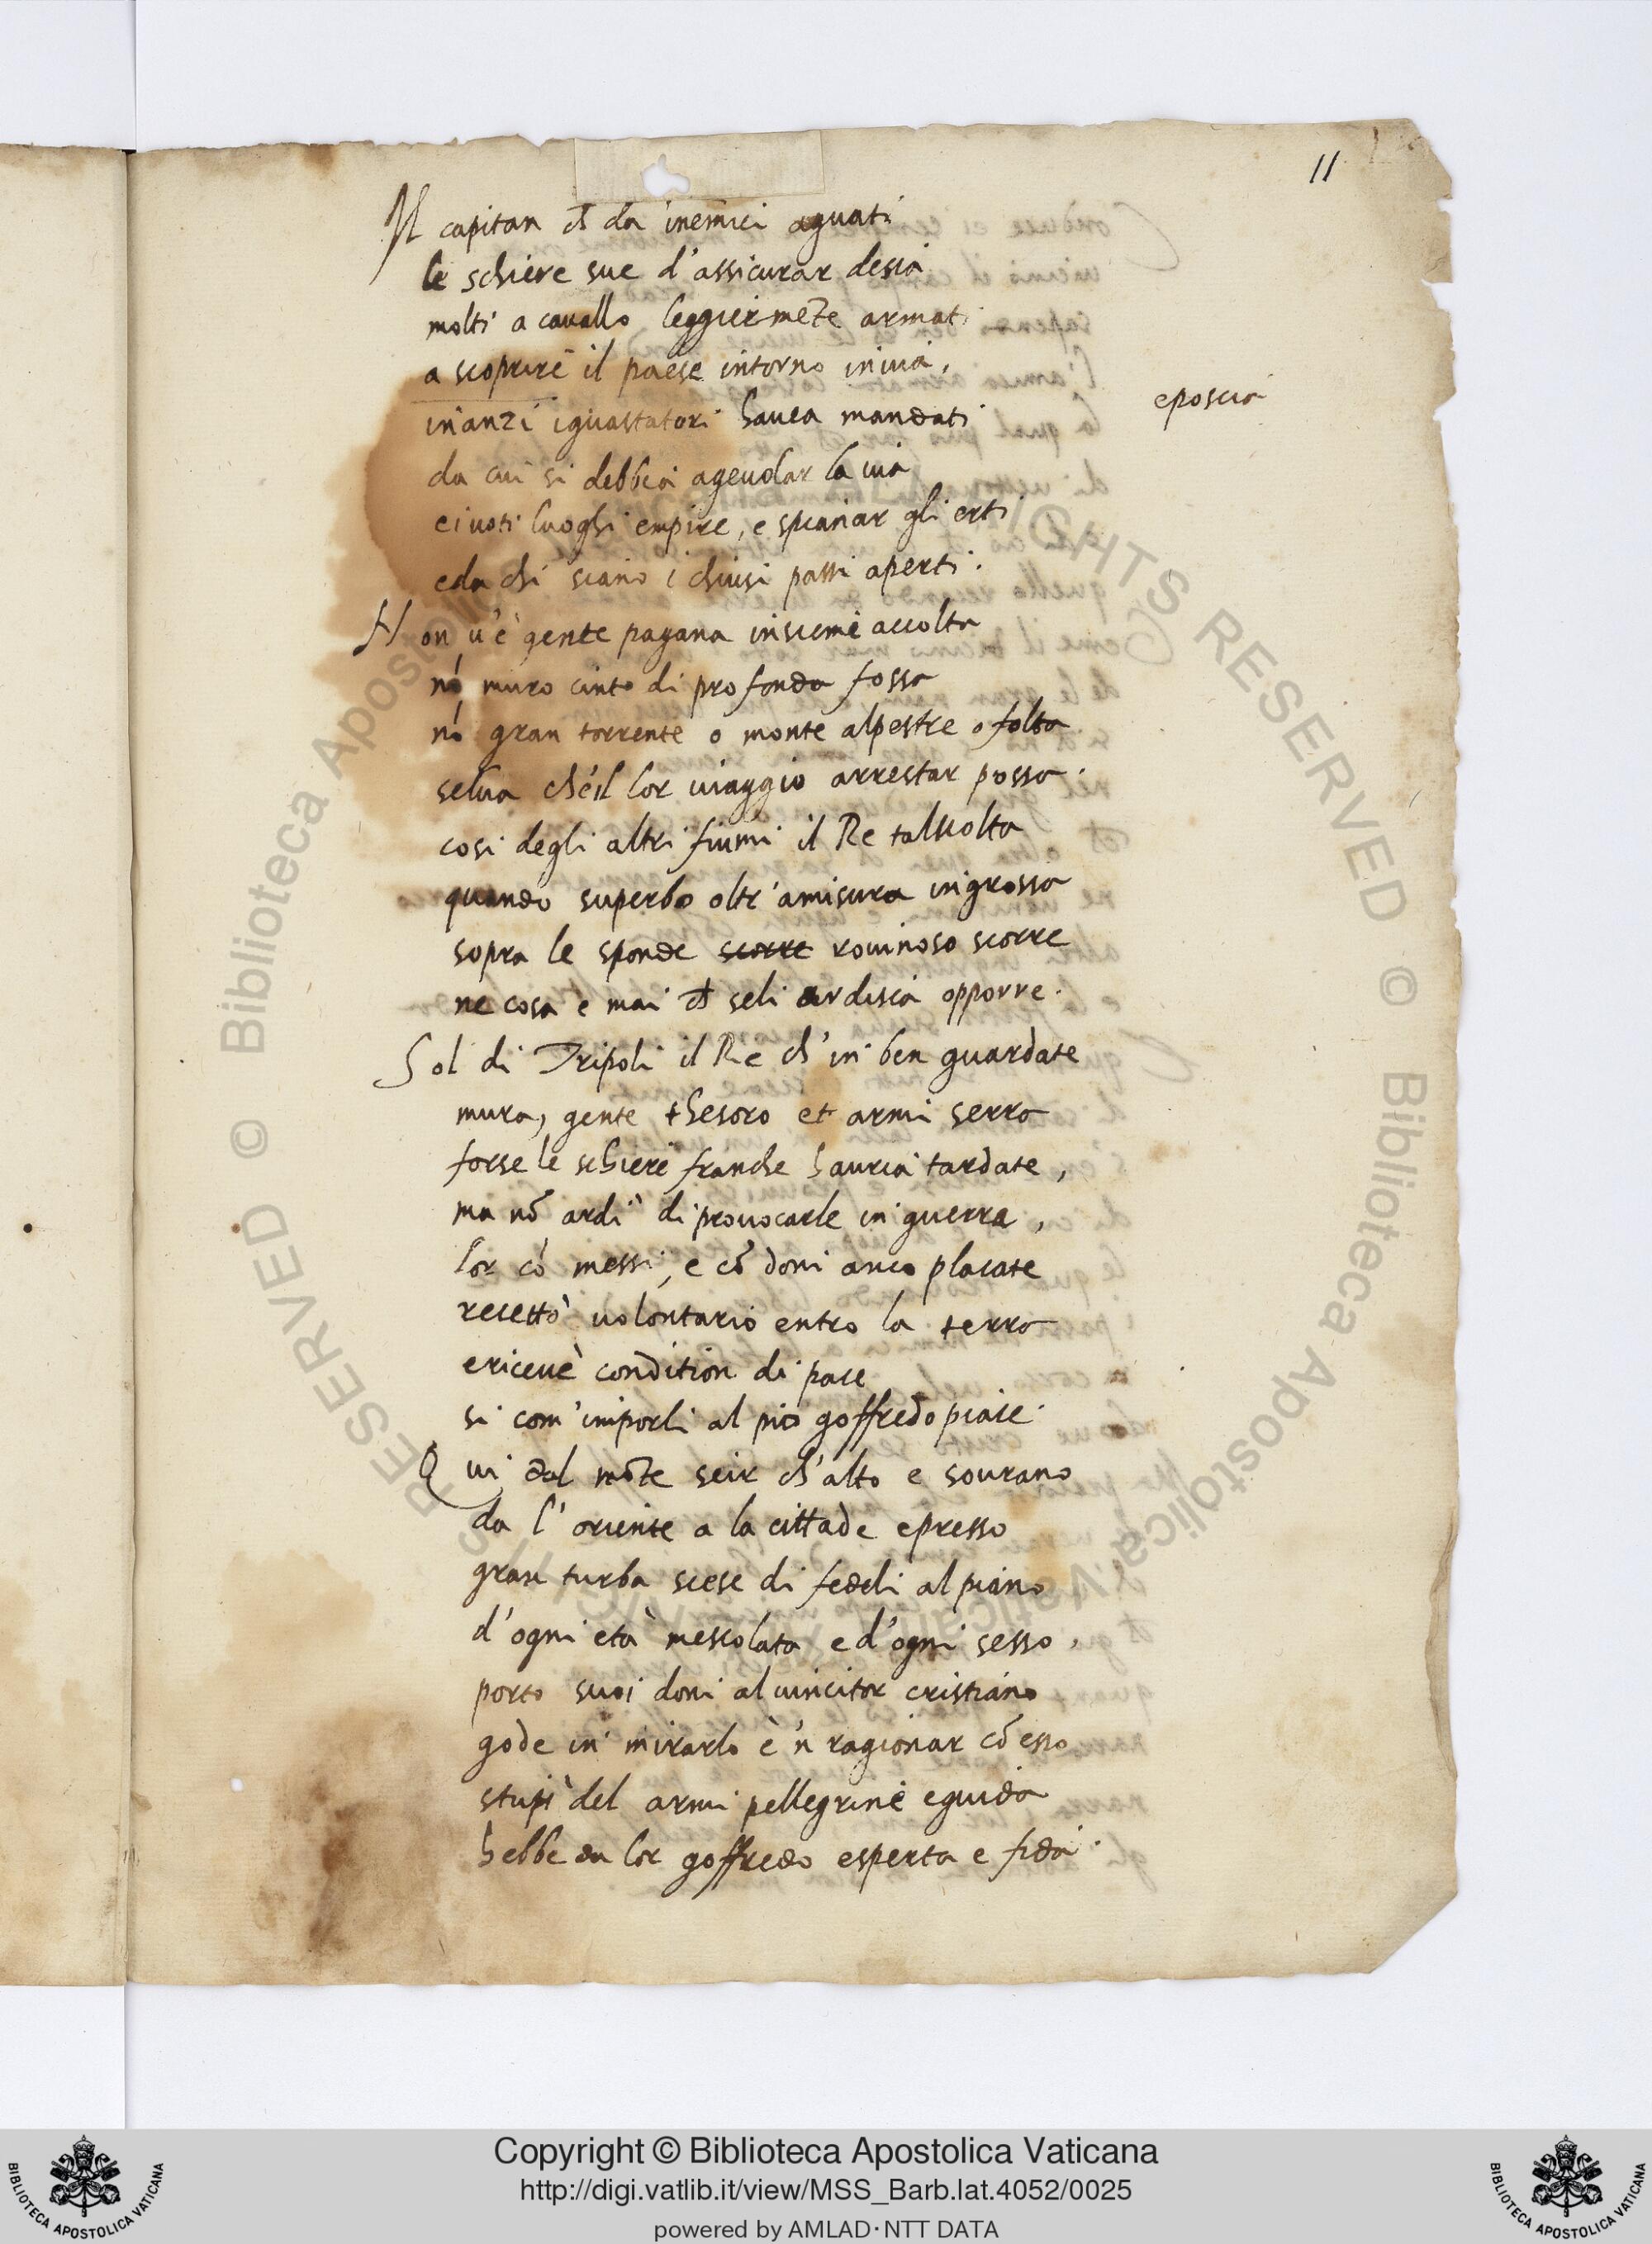 11
Il capitan ch da inemici aguati
le schiere sue d'assicurar desia
molti a cauallo leggiermẽte armati
a scoprire il paese intorno inuia,
eposcia
inanzi iguastatori hauea mandati
da cui si debbia ageuolar la uia
eiuoti luoghi empire, e spianar gli erti
eda chi siano i chiusi passi aperti.
Non u'è gente pagana insieme accolta
nõ muro cinto di profonda fossa
nõ gran torrente o monte alpestre o folta
selua ch'el lor uiaggio arrestar possa.
cosi degli altri fiumi il Re taluolta
quando superbo oltr'amisura ingrossa
sopra le sponde scorre rouinoso scorre
ne cosa e mai ch seli ardisca opporre.
Sol di Tripoli il Re ch'in ben guardate
mura, gente thesoro et armi serra
forse le schiere franche hauria tardate,
ma nõ ardì di prouocarle in guerra,
lor cõ messi, e cõ doni anco placate
recettò uolontario entro la terra
ericeuè condition di pace
si com'imporli al pio goffredo piace.
Qui dal mõte seir ch'alto e sourano
da l'oriente a la cittade epresso
gran turba scese di fedeli al piano
d'ogni età mescolata e d'ogni sesso,
porto suoi doni al uincitor cristiano
gode in mirarlo e 'n ragionar cõ esso
stupì del armi pellegrine eguida
hebbe da lor goffredo esperta e fida.
© Biblioteca Apostolica Vaticana
ALL RIGHTS RESERVED
Copyright © Biblioteca Apostolica Vaticana
http://digi.vatlib.it/view/MSS_Barb.lat.4052/0025
powered by AMLAD·NTT DATA
BIBLIOTECA APOSTOLICA VATICANA
BIBLIOTECA APOSTOLICA VATICANA